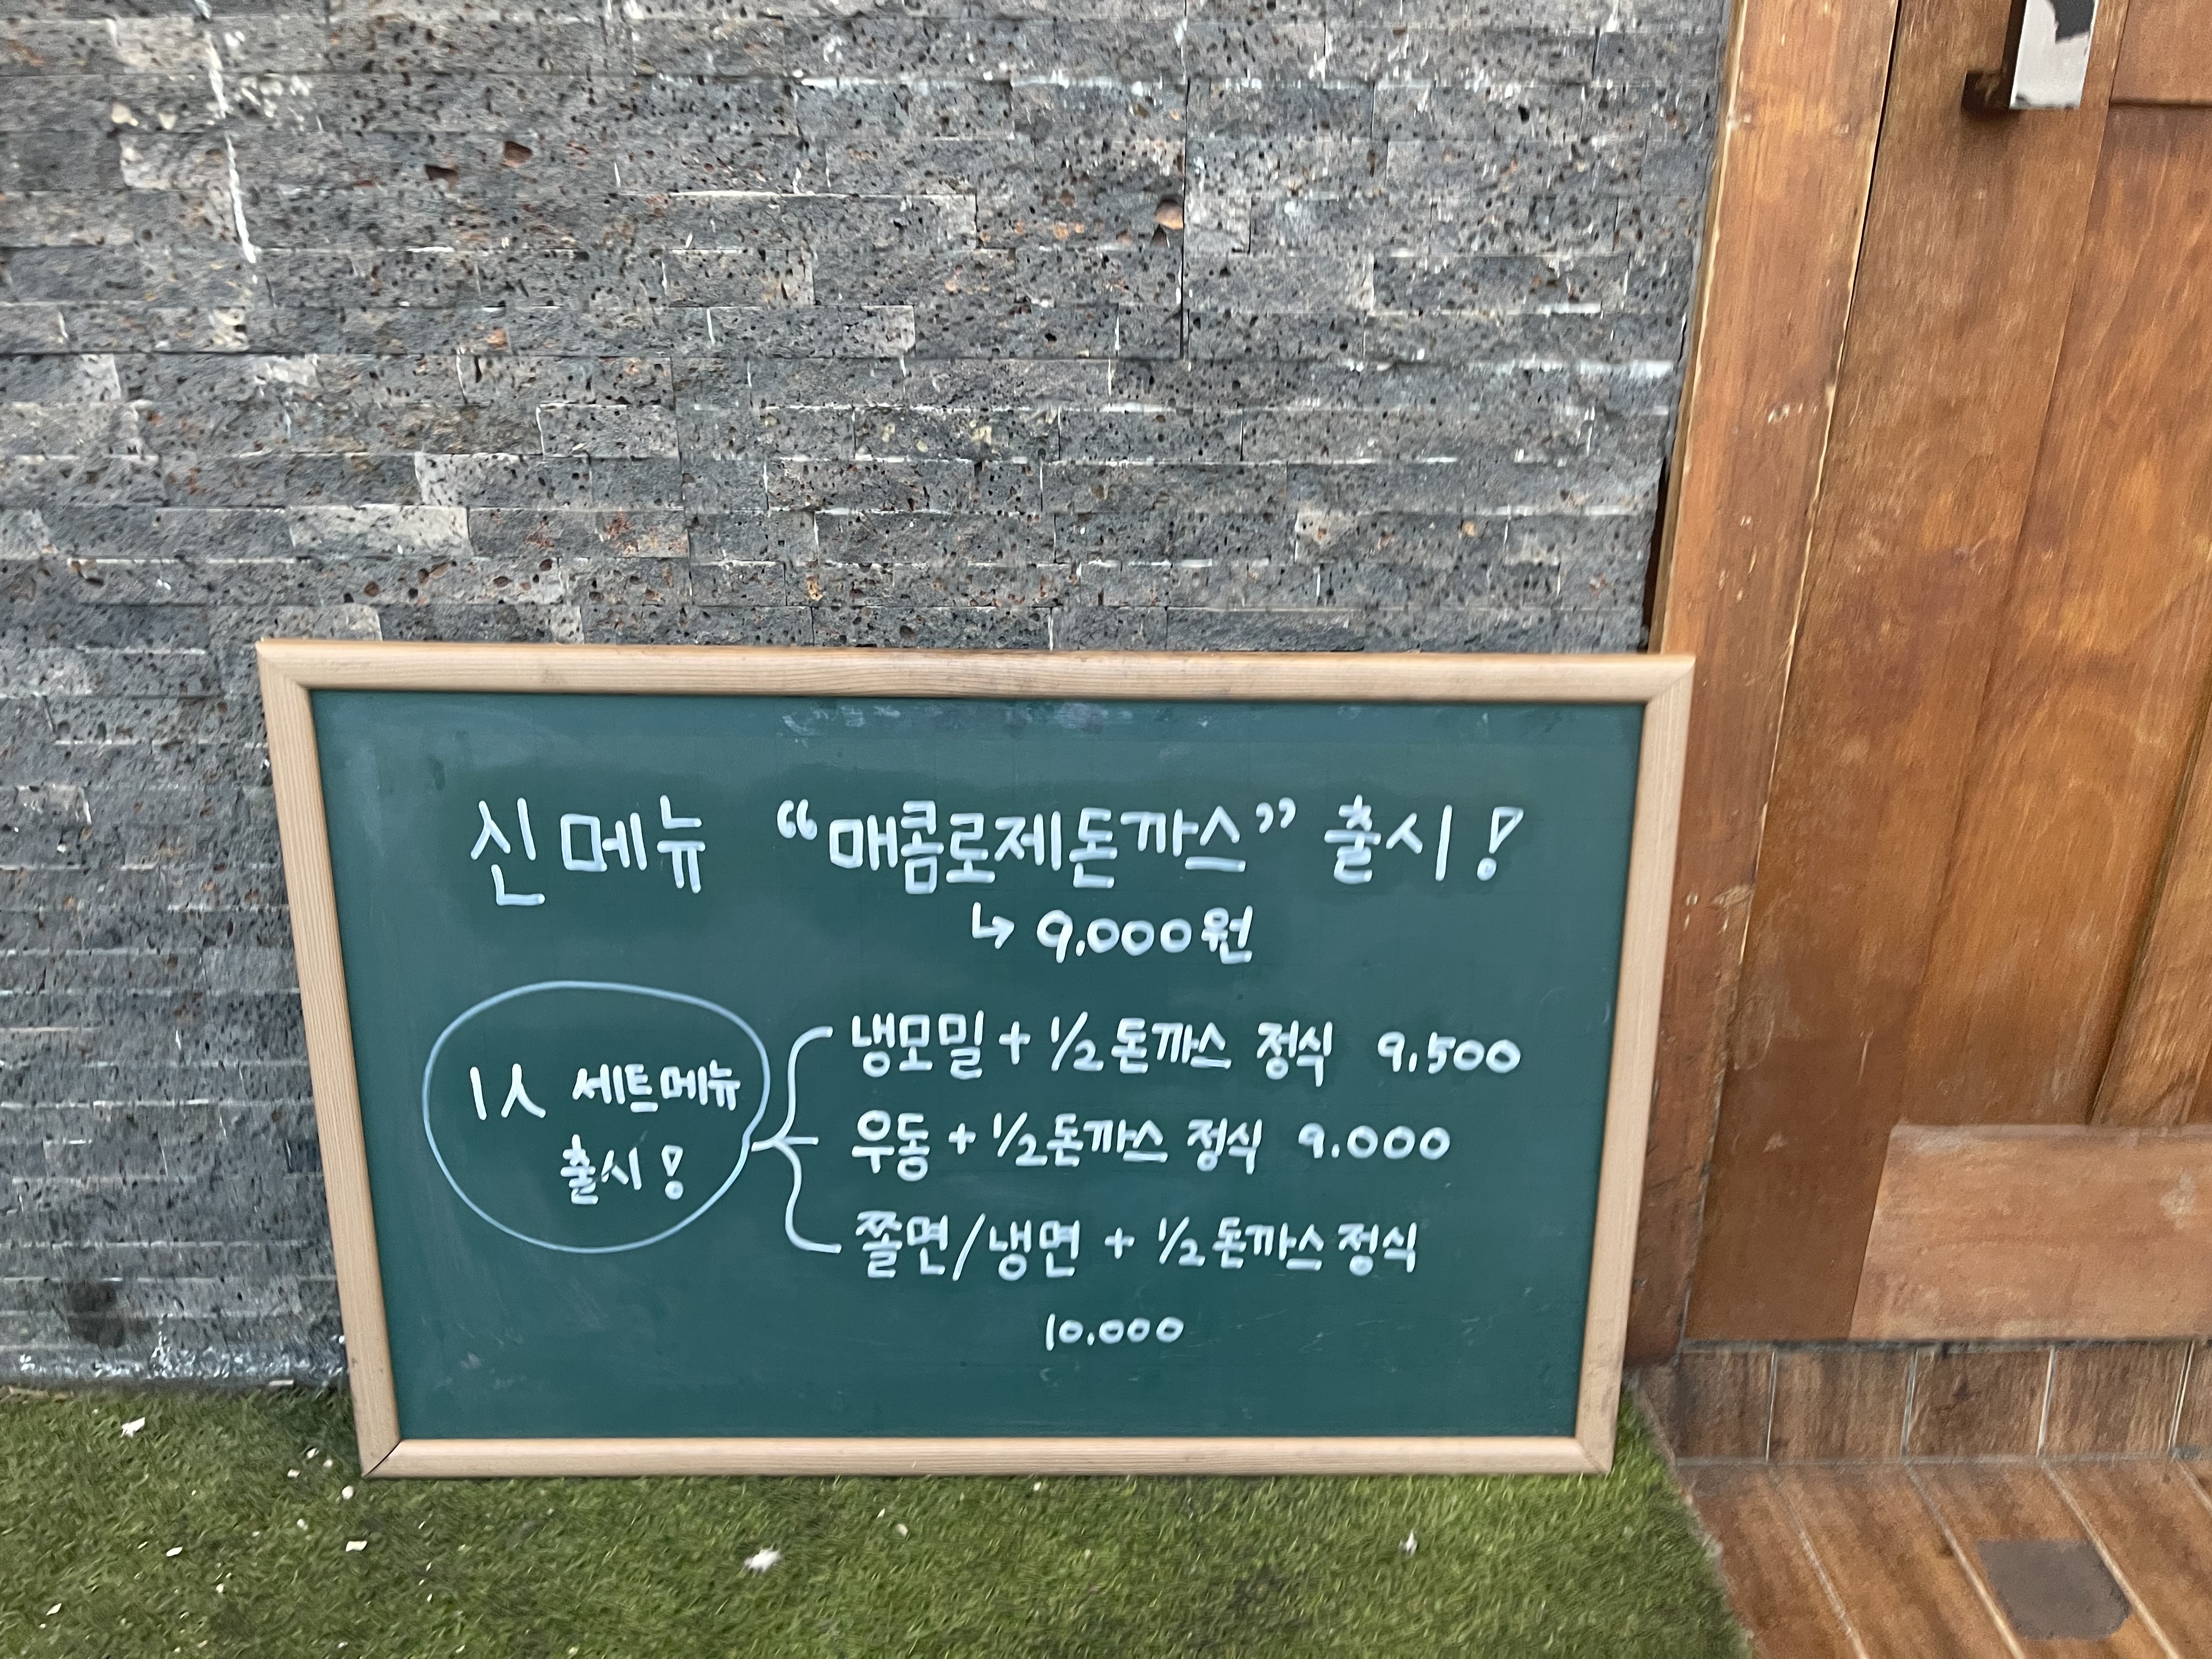 신메뉴 “매콤로제돈까스” 출시!
↳ 9,000원
1人 세트메뉴
출시!
냉모밀 + 1/2 돈까스 정식 9,500
우동 + 1/2 돈까스 정식 9.000
쫄면/냉면 + 1/2 돈까스 정식
10.000